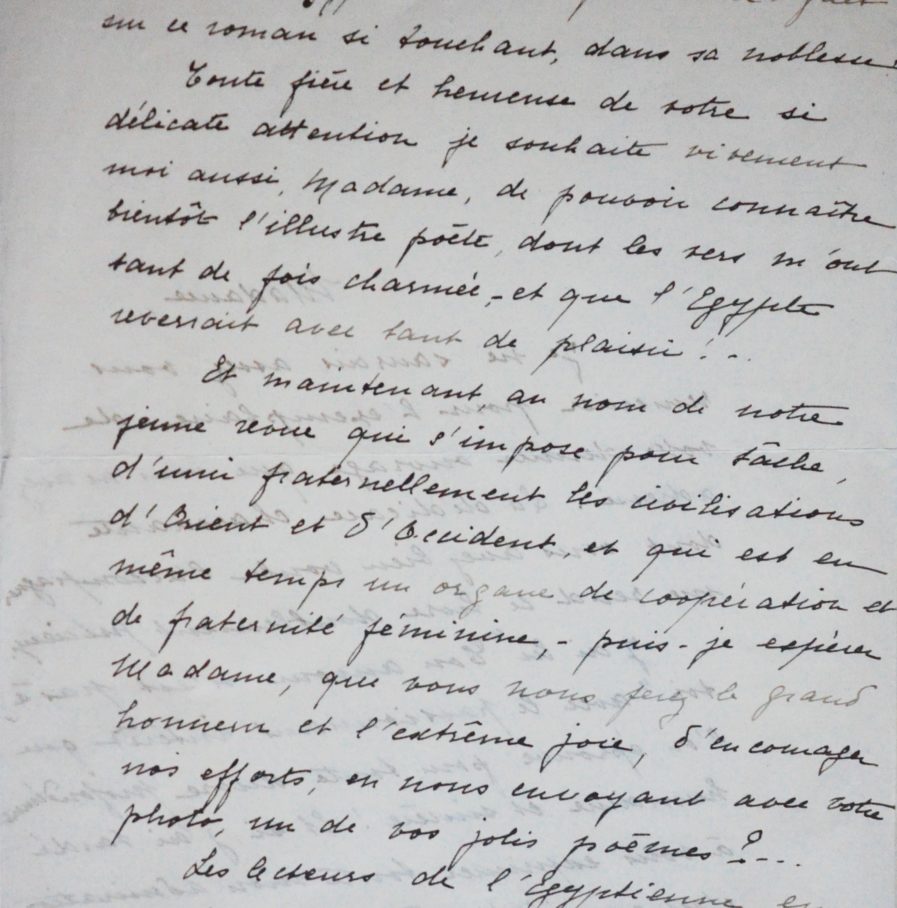 sur ce roman si touchant, dans sa noblesse!
Toute fière et heureuse de votre si
délicate attention je souhaite vivement
moi aussi, Madame, de pouvoir connaître
bientôt l'illustre poète, dont les vers m'ont
tant de fois charmée,- et que l'Egypte
reverrait avec tant de plaisir!..
Et maintenant au nom de notre
jeune revue qui s'impose pour tâche,
d'unir fraternellement les civilisations
d'Orient et d'Occident, et qui est en
même temps un organe de coopération et
de fraternité féminine,- puis-je espérer
Madame, que vous nous ferez le grand
honneur et l'extrême joie, d'encourager
nos efforts, en nous envoyant avec votre
photo, un de vos jolis poèmes?...
Les lecteurs de l'Egyptienne en